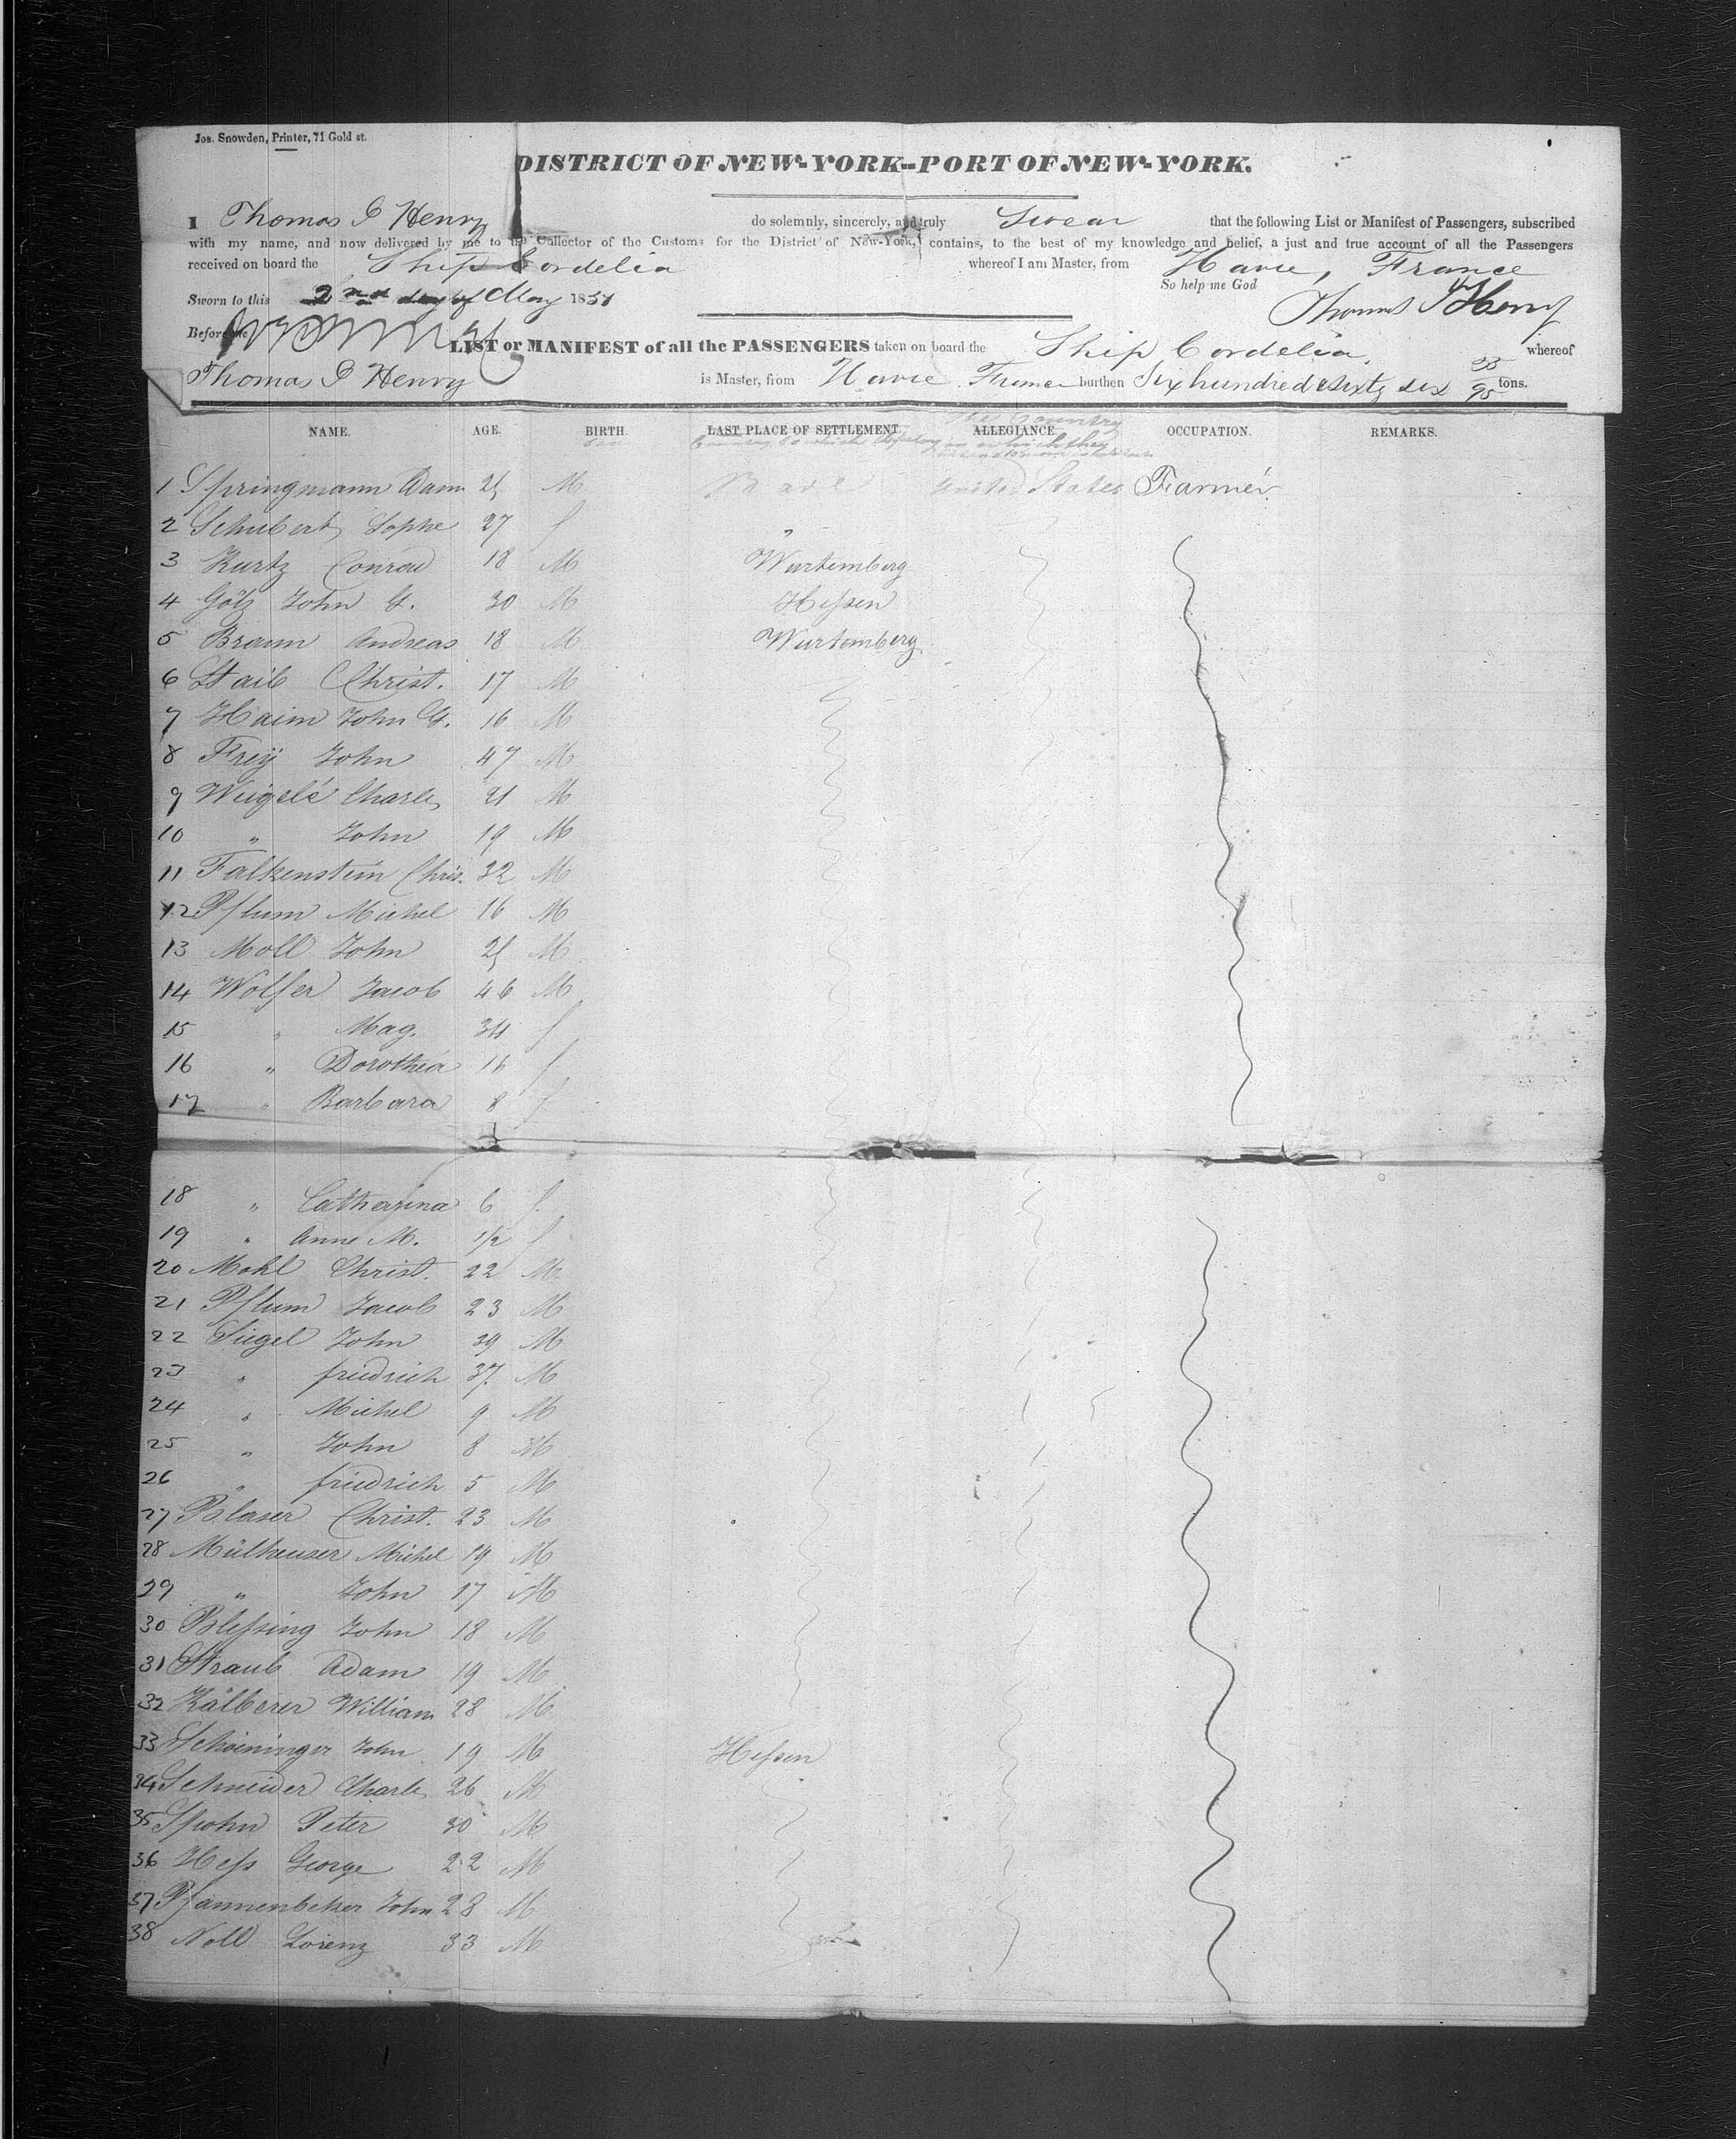 Jos. Snowden, Printer, 71 Gold st.
DISTRICT OF NEW-YORK--PORT OF NEW-YORK.
I Thomas P Henry do solemnly, sincerely, and truly Swear that the following List or Manifest of Passengers, subscribed
with my name, and now delivered by me to the Collector of the Customs for the District of New-York, contains, to the best of my knowledge and belief, a just and true account of all the Passengers
received on board the Ship Cordelia whereof I am Master, from Havre, France
So help me God
Sworn to this 2nd day of May 1851
Thomas P Henry
Before me
LIST or MANIFEST of all the PASSENGERS taken on board the Ship Cordelia, whereof
Thomas P Henry is Master, from Havre France burthen Six hundred & sixty six 35/95 tons.
NAME. AGE. BIRTH. LAST PLACE OF SETTLEMENT. ALLEGIANCE. OCCUPATION. REMARKS.
Sex Country to which they belong the Country in which they
1 Springmann Dam 25 M United States Farmer
2 Schubert Sophe 27 f "
3 Kurtz Conrad 18 M Wurtemberg
4 Götz John G. 30 M Hessen
5 Braun Andreas 18 M Wurtemberg
6 Staib Christ. 17 M
7 Haim John G. 16 M
8 Freÿ John 47 M
9 Weigelé Charles 21 M
10 " John 19 M
11 Falkenstein Chris. 32 M
12 Pflum Michel 16 M
13 Moll John 25 M
14 Wolfer Jacob 46 M
15 " Mag. 34 f
16 " Dorothea 16 f
17 " Barbara 8 f
18 " Catharina 6 f
19 " Anne M. 1/2 f
20 Mohl Christ. 22 M
21 Pflum Jacob 23 M
22 Siegel John 39 M
23 " friedrich 37 M
24 " Michel 9 M
25 " John 8 M
26 " friedrich 5 M
27 Blaser Christ. 23 M
28 Mülheuser Michel 19 M
29 " John 17 M
30 Blessing John 18 M
31 Straub Adam 19 M
32 Kälberer William 28 M
33 Schöninger John 19 M Hessen
34 Schneider Charles 26 M
35 Spohn Peter 30 M
36 Hess George 22 M
37 Pfannenbeker John 28 M
38 Noll Lorenz 33 M